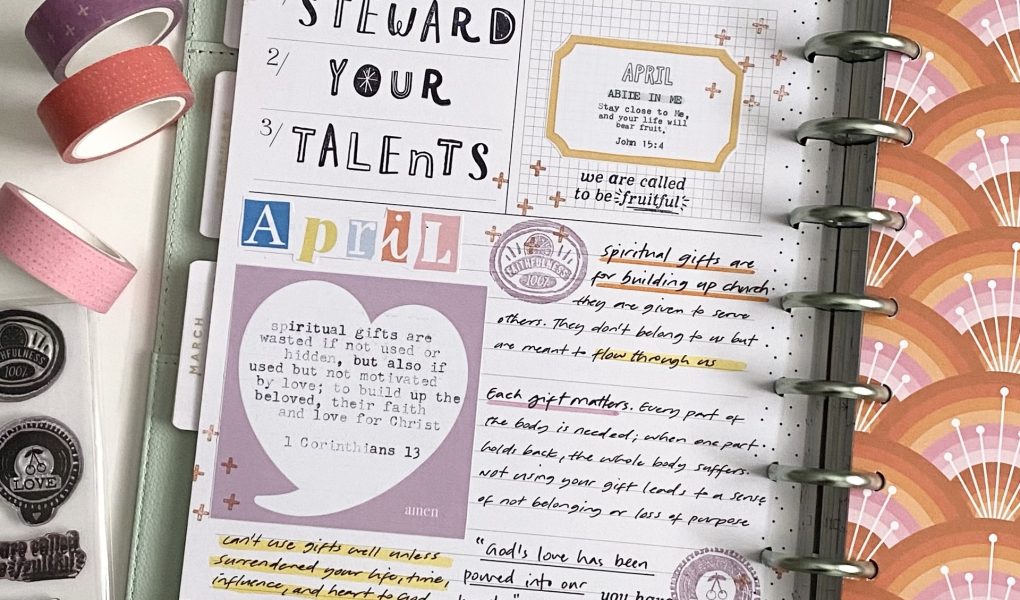 STEWARD
2/
YOUR
3/
TALENTS
APRIL
ABIDE IN ME
Stay close to Me,
and your life will
bear fruit.
John 15:4
we are called
to be fruitful
April
FAITHFULNESS
100%
spiritual gifts are
wasted if not used or
hidden, but also if
used but not motivated
by love; to build up the
beloved, their faith
and love for Christ
1 Corinthians 13
amen
Spiritual gifts are
for building up church.
they are given to serve
others. They don't belong to us but
are meant to flow through us
Each gift matters. Every part of
the body is needed; when one part
holds back, the whole body suffers.
Not using your gift leads to a sense
of not belonging or loss of purpose
can't use gifts well unless
surrendered your life, time,
influence, and heart to God
"God's love has been
poured into our
you have
MARCH
FAITHFULNESS
100%
LOVE
are called